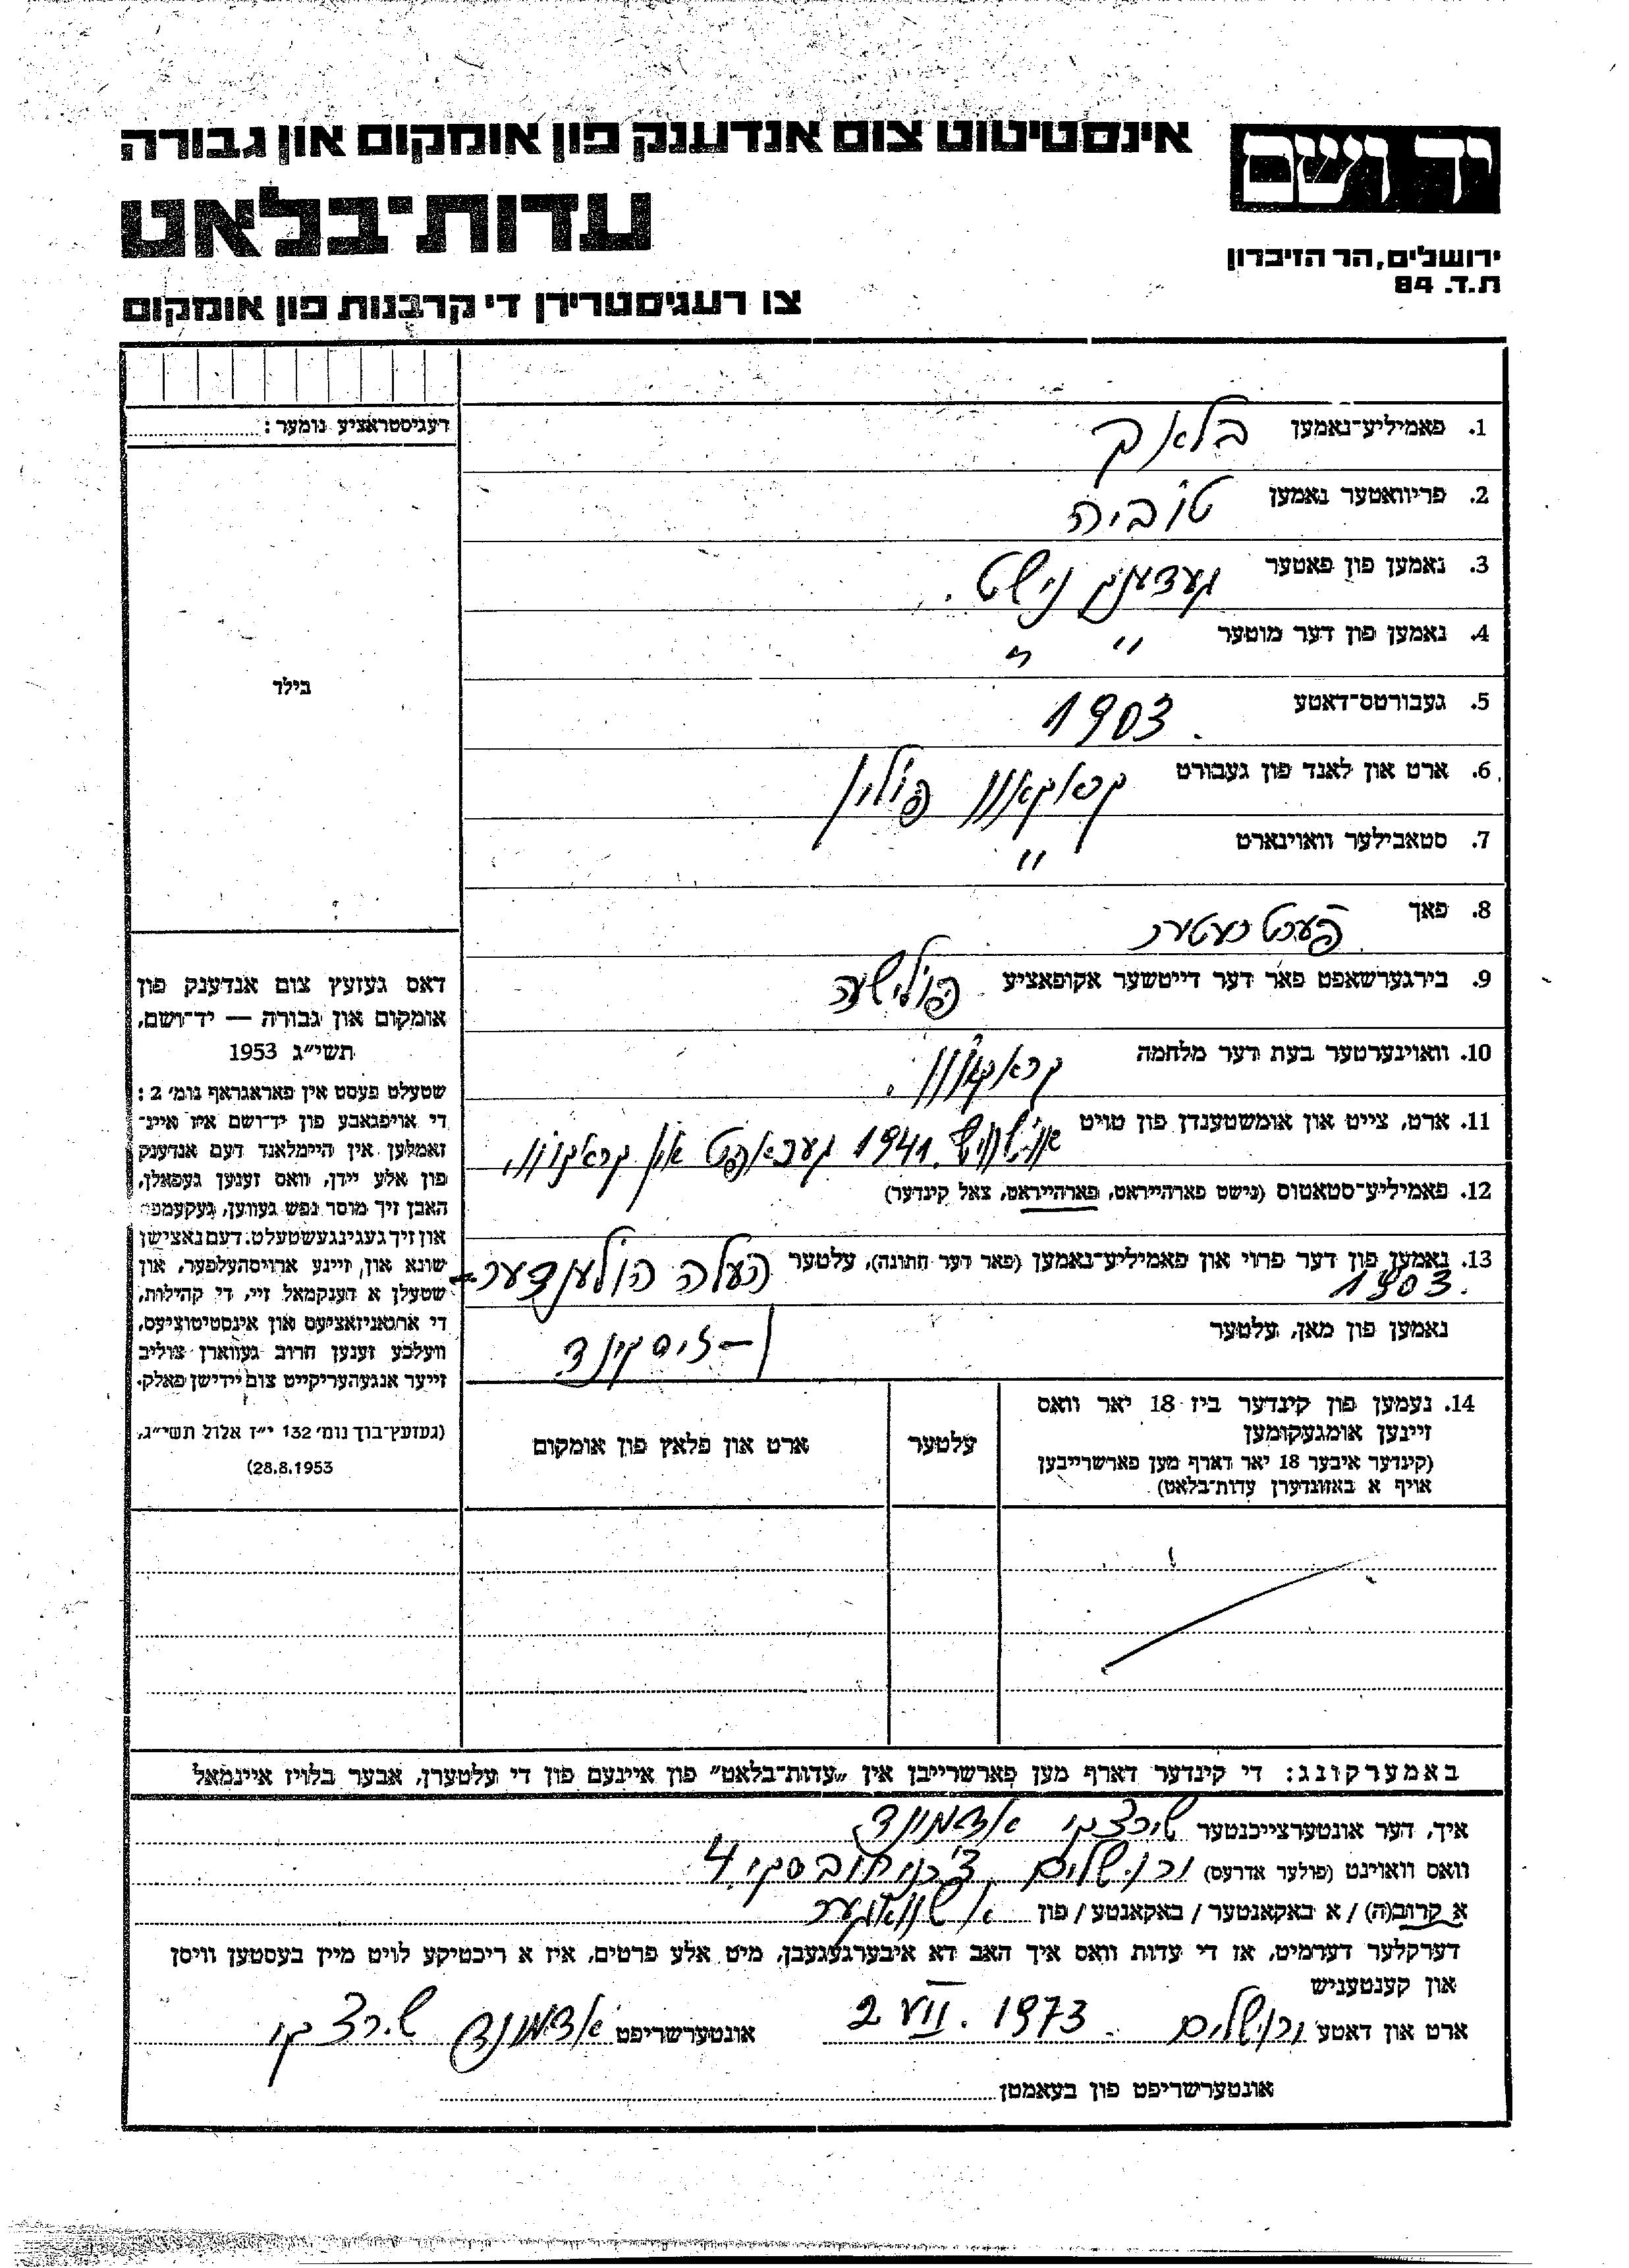 יד ושם
אינסטיטוט צום אנדענק פון אומקום און גבורה
עדות־בלאט
צו רעגיסטרירן די קרבנות פון אומקום
ירושלים, הר הזיכרון
ת.ד. 84
רעגיסטראציע נומער:
בילד
1. פאמיליע־נאמען בלאק
2. פריוואטער נאמען טוביה
3. נאמען פון פאטער געדענק נישט.
4. נאמען פון דער מוטער " "
5. געבורטס־דאטע 1903
6. ארט און לאנד פון געבורט קראקאוו פולין
7. סטאבילער וואוינארט "
8. פאך
9. בירגערשאפט פאר דער דייטשער אקופאציע פולישע
10. וואוינערטער בעת דער מלחמה קראקאוו.
11. ארט, צייט און אומשטענדן פון טויט אוישוויץ. 1941 געכאפט אין קראקאוו
12. פאמיליע־סטאטוס (נישט פארהייראט, פארהייראט, צאל קינדער)
13. נאמען פון דער פרוי און פאמיליע־נאמען (פאר דער חתונה), עלטער העלה הולענדער־
1903.
נאמען פון מאן, עלטער
– זיסקינד
14. נעמען פון קינדער ביז 18 יאר וואס
זיינען אומגעקומען
(קינדער איבער 18 יאר דארף מען פארשרייבען
אויף א באזונדערן עדות־בלאט)
עלטער
ארט און פלאץ פון אומקום
דאס געזעץ צום אנדענק פון
אומקום און גבורה — יד־ושם,
תשי"ג 1953
שטעלט פעסט אין פאראגראף נומ' 2:
די אויפגאבע פון יד־ושם איז איינ־
זאמלען אין היימלאנד דעם אנדענק
פון אלע יידן, וואס זענען געפאלן,
האבן זיך מוסר נפש געווען, געקעמפט
און זיך געגינגעשטעלט דעם נאצישן
שונא און זיינע ארויסהעלפער, און
שטעלן א דענקמאל זיי, די קהילות,
די ארגאניזאציעס און אינסטיטוציעס,
וועלכע זענען חרוב געווארן צוליב
זייער אנגעהעריקייט צום יידישן פאלק.
(געזעץ־בוך נומ' 132 י"ז אלול תשי"ג,
28.8.1953)
באמערקונג: די קינדער דארף מען פארשרייבן אין "עדות־בלאט" פון איינעם פון די עלטערן, אבער בלויז איינמאל
איך, דער אונטערצייכנטער שירצקי אדמונד
וואס וואוינט (פולער אדרעס) ירושלים צ'רניחובסקי 4
א קרוב(ה) / א באקאנטער / באקאנטע / פון א שוואגער
דערקלער דערמיט, אז די עדות וואס איך האב דא איבערגעגעבן, מיט אלע פרטים, איז א ריכטיקע לויט מיין בעסטען וויסן
און קענטעניש
ארט און דאטע ירושלים 2 VII. 1973 אונטערשריפט אדמונד שירצקי
אונטערשריפט פון בעאמטן